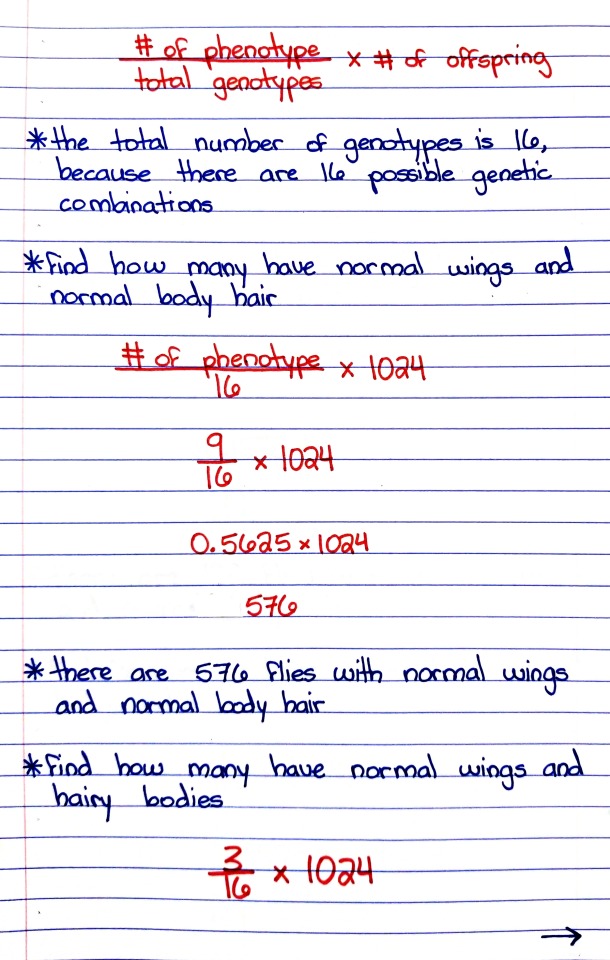 # of phenotype
total genotypes × # of offspring
*the total number of genotypes is 16,
because there are 16 possible genetic
combinations
*find how many have normal wings and
normal body hair
# of phenotype
16 × 1024
9
16 × 1024
0.5625 × 1024
576
*there are 576 flies with normal wings
and normal body hair
*find how many have normal wings and
hairy bodies
3
16 × 1024
→